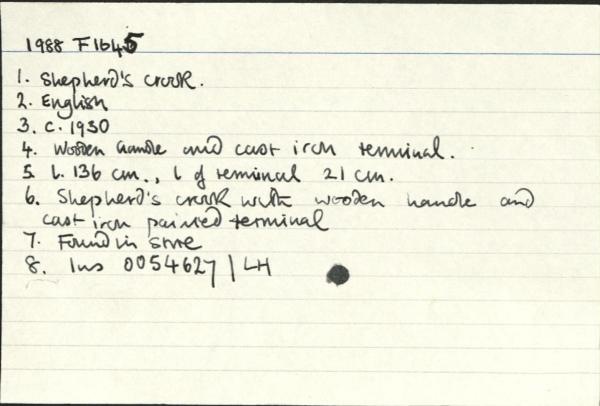 1988 F1645
1. Shepherd's crook.
2. English
3. c. 1930
4. Wooden handle and cast iron terminal.
5. L. 136 cm., L of terminal 21 cm.
6. Shepherd's crook with wooden handle and
cast iron painted terminal
7. Found in store
8. Ins 0054627/LH